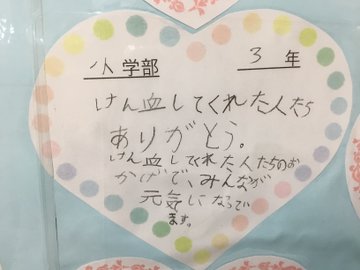 小学部 3年
けん血してくれた人たち
ありがとう。
けん血してくれた人たちのお
かげで、みんなが
元気になってい
ます。